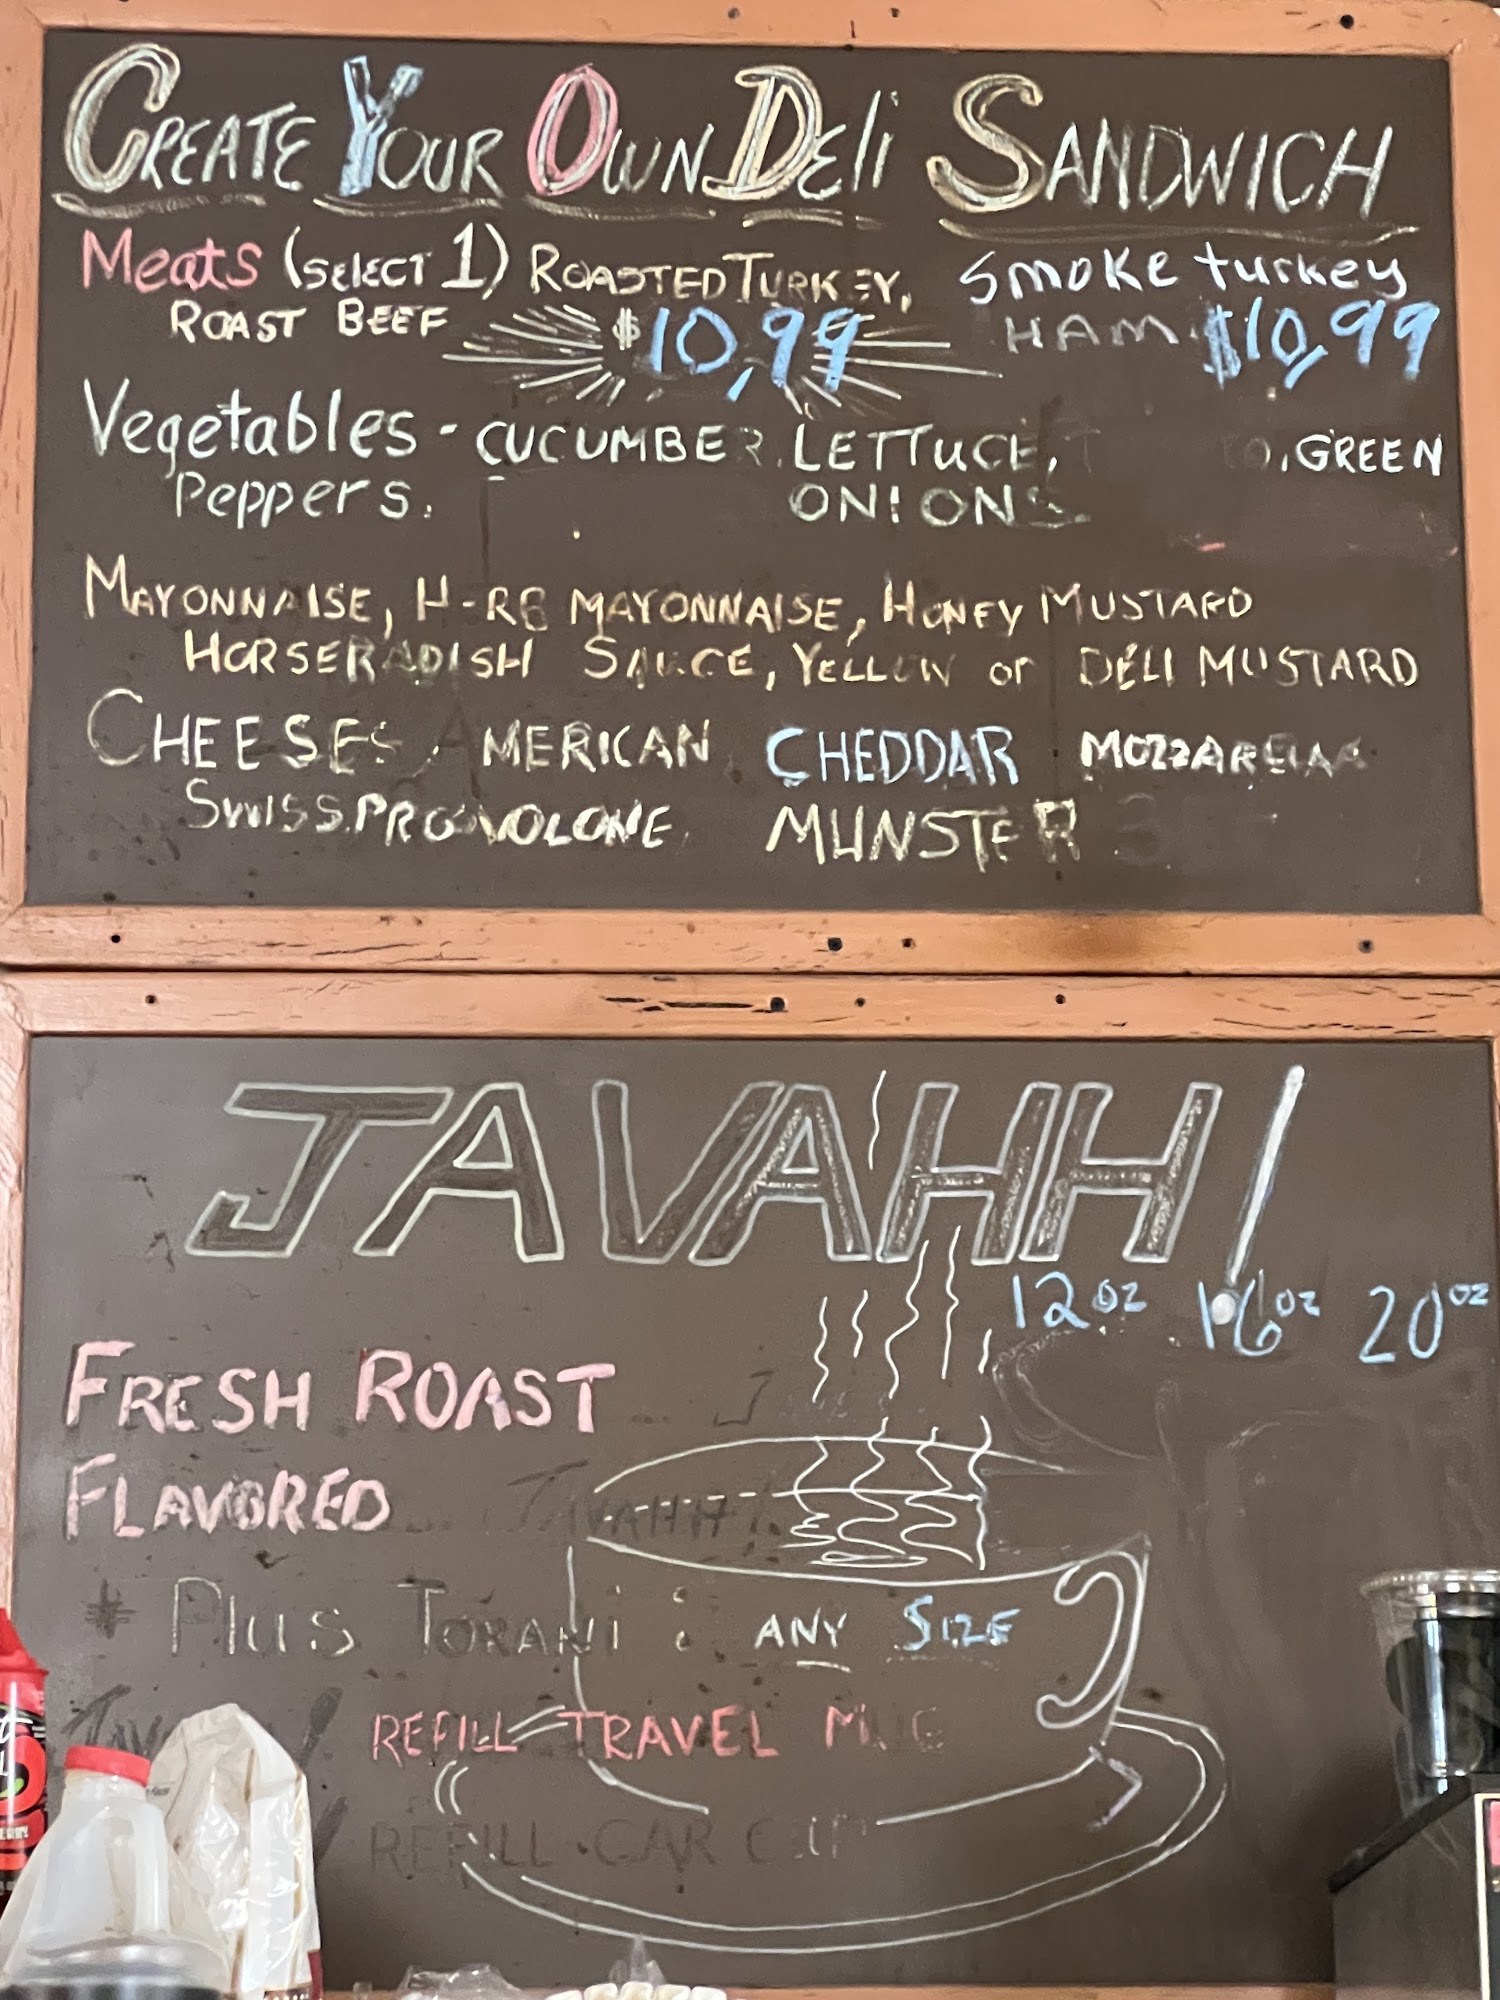 CREATE YOUR OWN DELi SANDWICH
Meats (SELECT 1) ROASTED TURKEY, Smoke turkey
ROAST BEEF $10,99 HAM $10,99
Vegetables - CUCUMBER, LETTUCE, GREEN
Peppers. ONIONS
MAYONNAISE, H-RB MAYONNAISE, HONEY MUSTARD
HORSERADISH SAUCE, YELLOW or DELI MUSTARD
CHEESES, AMERICAN CHEDDAR MOZZARELLA
SWISS. PROVOLONE MUNSTER
JAVAHH!
12 oz 16 oz 20 oz
FRESH ROAST
FLAVORED
JAVAHH!
* Plus TORANi : ANY SIZE
REFILL TRAVEL MUG
REFILL CAR CUP